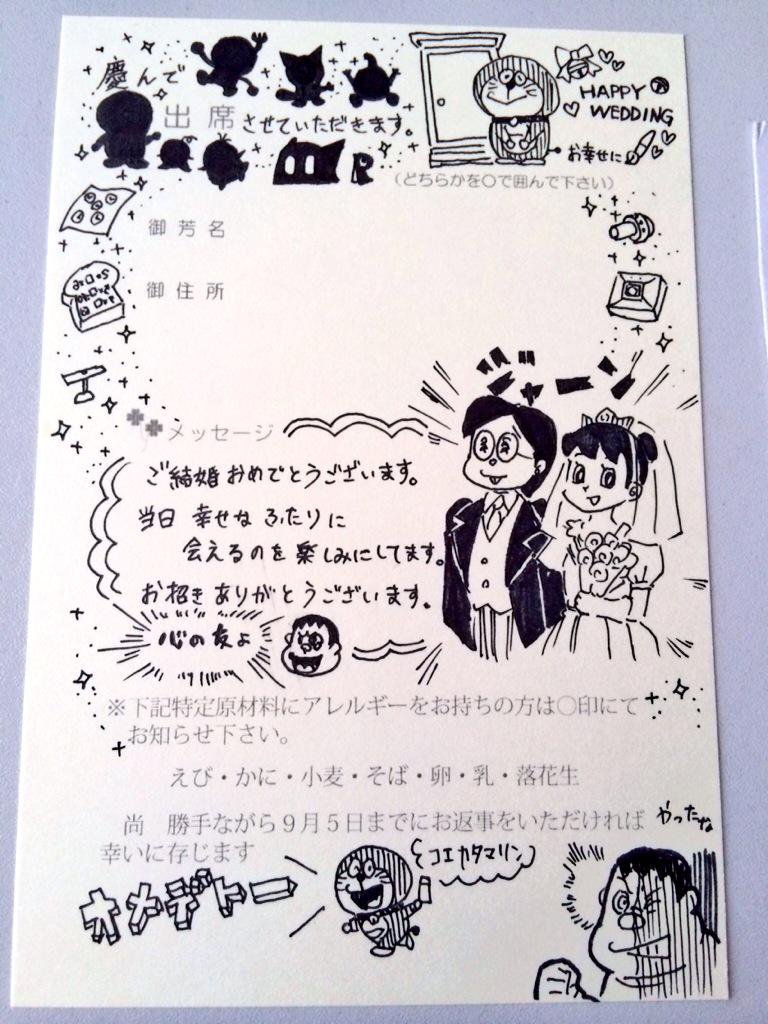 慶んで
出席させていただきます。
HAPPY
WEDDING
お幸せに
(どちらかを〇で囲んで下さい)
御芳名
御住所
ジャーン
メッセージ
ご結婚おめでとうございます。
当日 幸せな ふたりに
会えるのを楽しみにしてます。
お招きありがとうございます。
心の友よ
※下記特定原材料にアレルギーをお持ちの方は〇印にて
お知らせ下さい。
えび・かに・小麦・そば・卵・乳・落花生
尚 勝手ながら9月5日までにお返事をいただければ
幸いに存じます
やったな
コエカタマリン
オメデトー